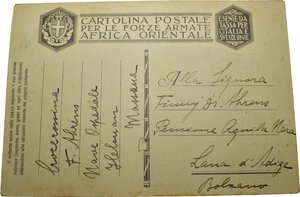 CARTOLINA POSTALE
PER LE FORZE ARMATE
AFRICA ORIENTALE
ESENTE DA
TASSA PER
L'ITALIA E
SVE COLONIE
Alla Signora
Finny di Ahrens
Pensione Aquila Nera
Lana d'Adige
Bolzano
Crocerossina
F. Ahrens
Nave Ospedale
Helouan
Massaua